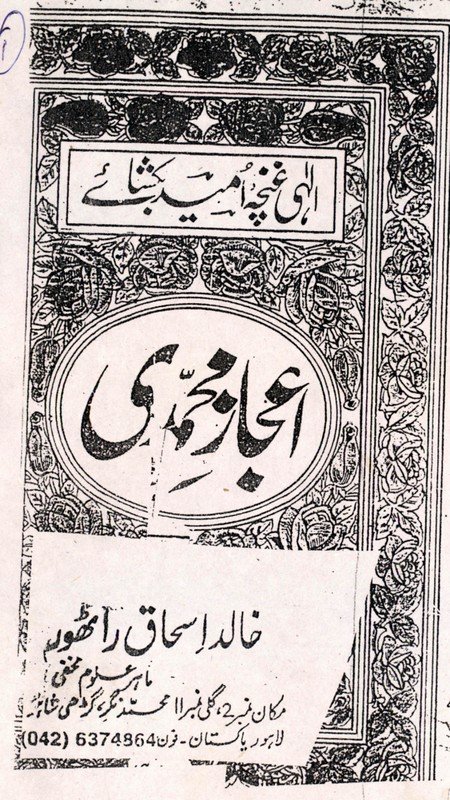 الٰہی غنچہ اُمید بکشائے
اعجازِ محمّدی
خالد اسحاق راٹھور
ماہر علوم مخفی
مکان نمبر 2، گلی نمبر 11 محمد نگر، گڑھی شاہو
لاہور پاکستان - فون 6374864 (042)